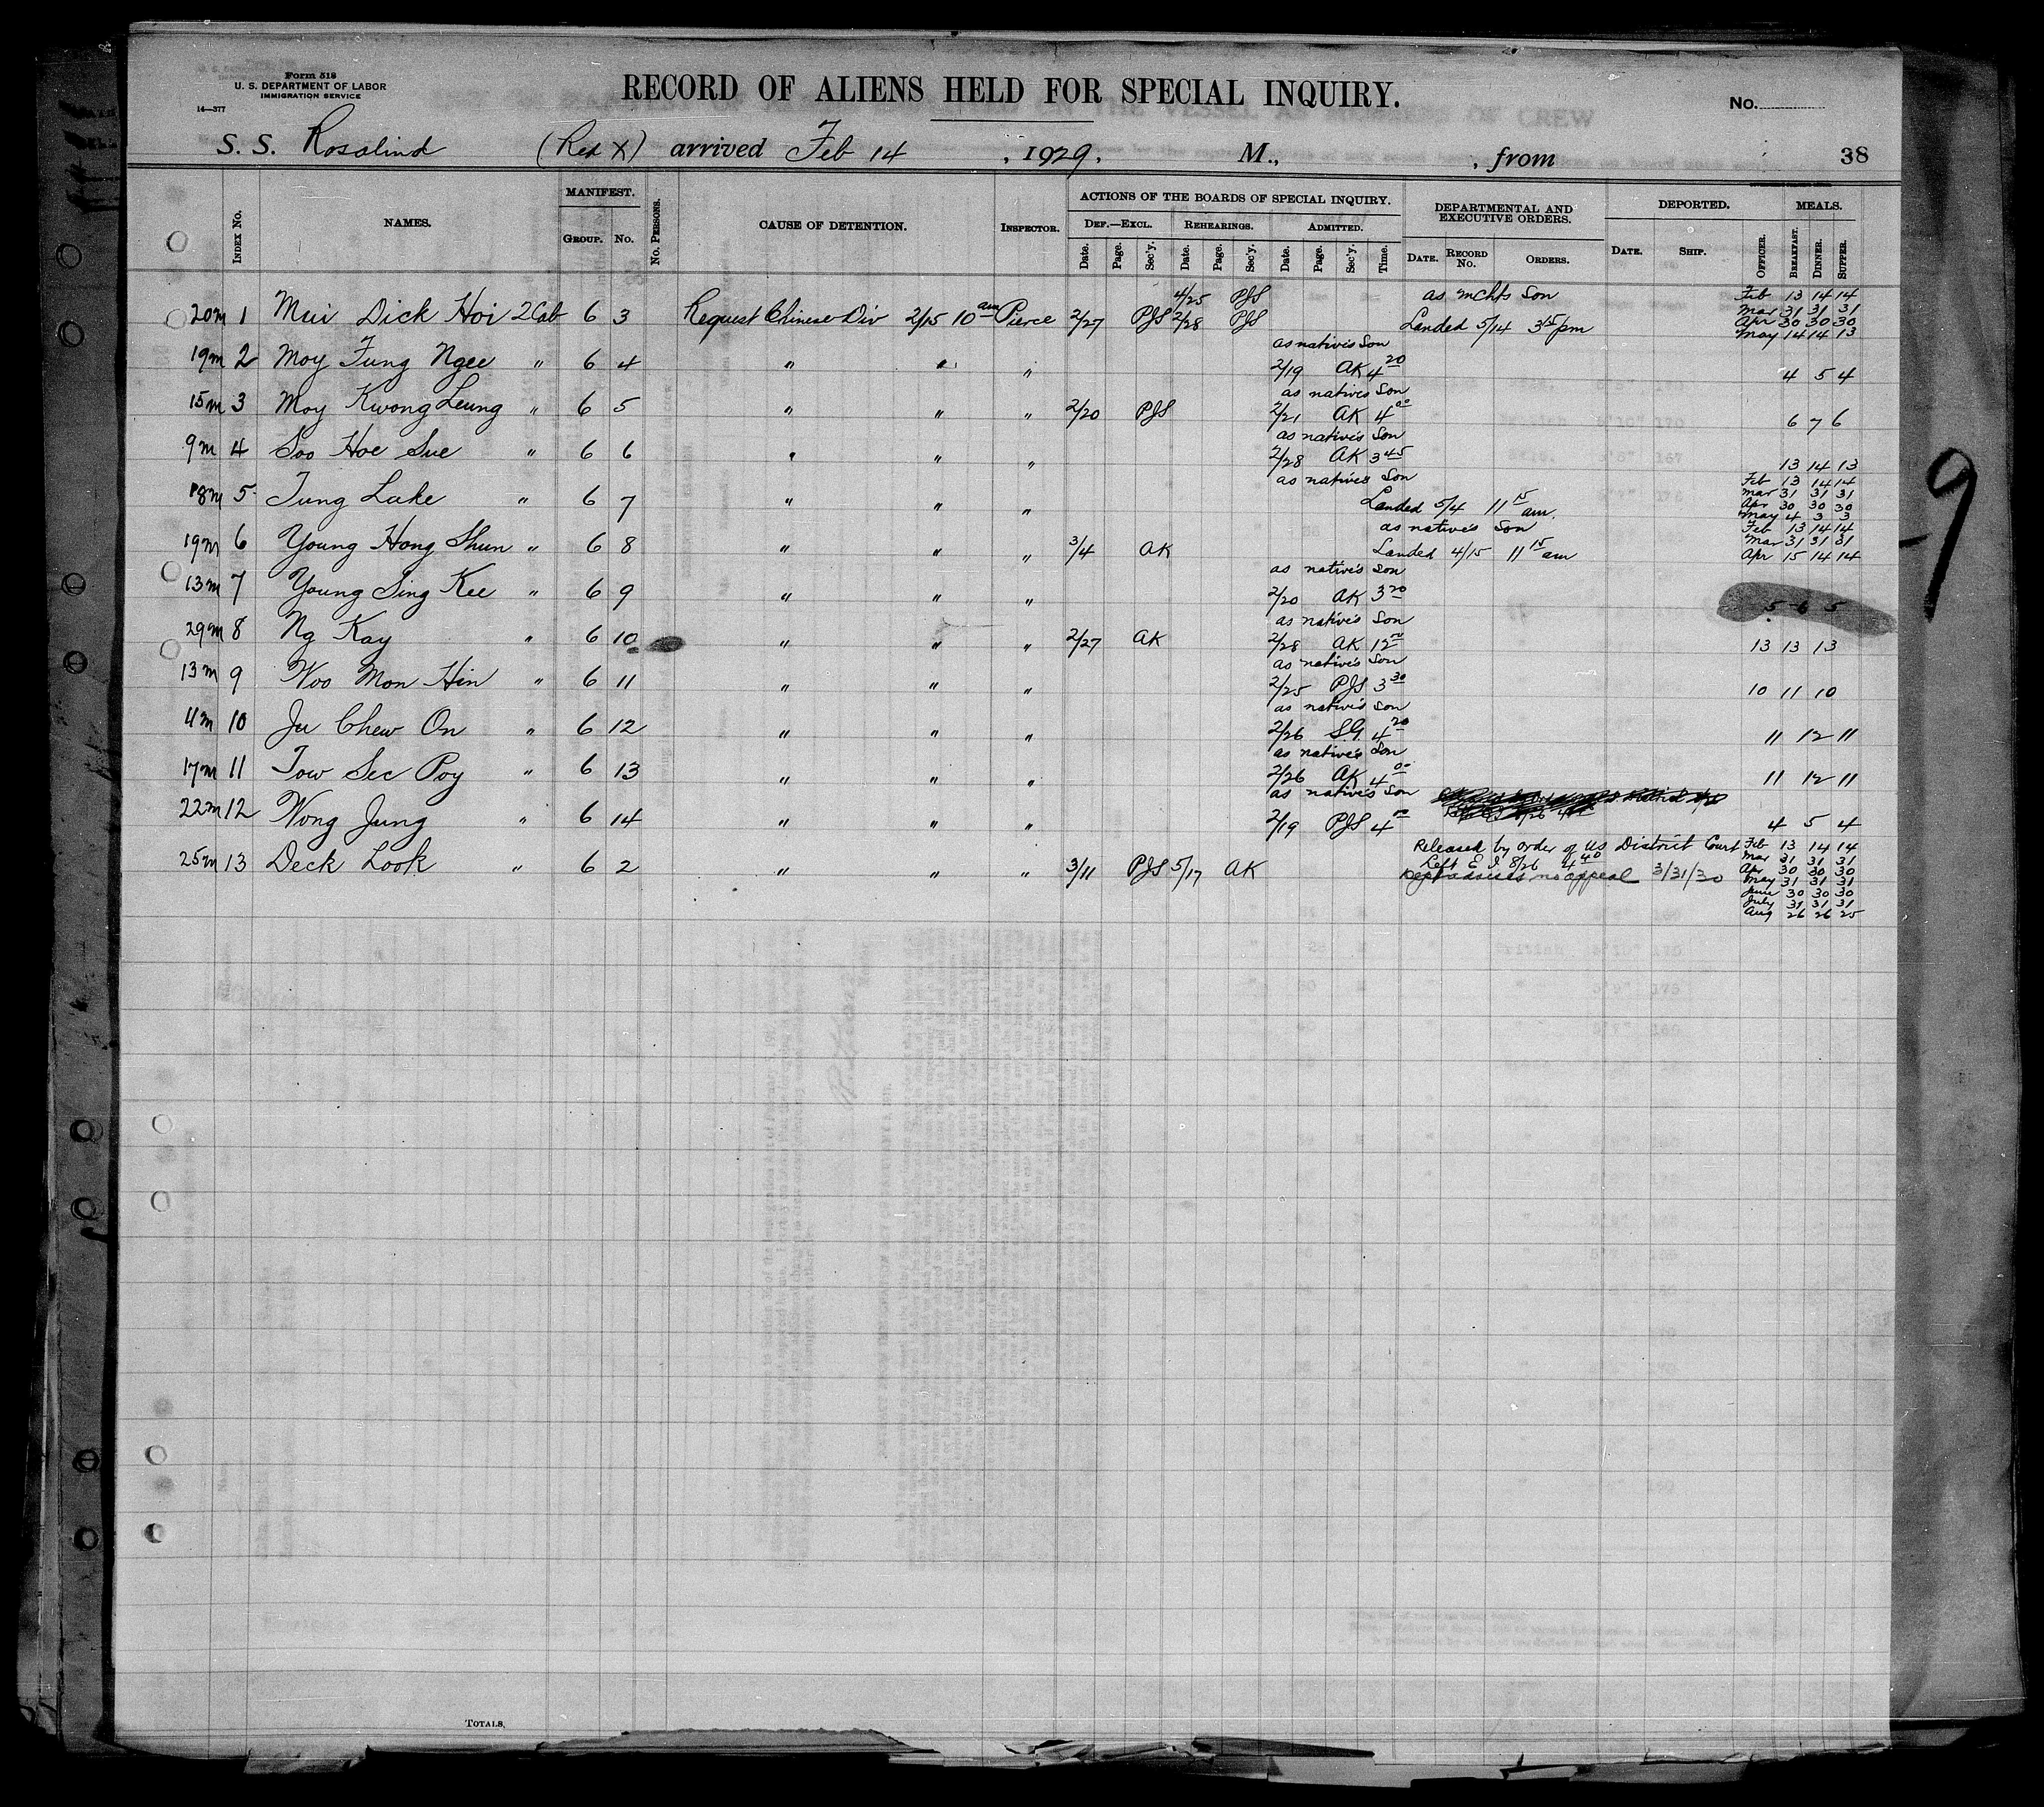 Form 518
U. S. DEPARTMENT OF LABOR
IMMIGRATION SERVICE
14—377
RECORD OF ALIENS HELD FOR SPECIAL INQUIRY.
No.
S. S. Rosalind (Red X) arrived Feb 14, 1929, M., , from 38
INDEX No. NAMES. MANIFEST. GROUP. No. No. PERSONS. CAUSE OF DETENTION. INSPECTOR. ACTIONS OF THE BOARDS OF SPECIAL INQUIRY. DEF.—EXCL. Date. Page. Sec'y. REHEARINGS. Date. Page. Sec'y. ADMITTED. Date. Page. Sec'y. Time. DEPARTMENTAL AND EXECUTIVE ORDERS. DATE. RECORD No. ORDERS. DEPORTED. DATE. SHIP. OFFICER. MEALS. BREAKFAST. DINNER. SUPPER.
4/25 PJS as mchts son Feb 13 14 14
20m 1 Mui Dick Hoi 2Cab 6 3 Request Chinese Div 2/15 10 am Pierce 2/27 PJS 2/28 PJS Landed 5/14 3 15 pm Mar 31 31 31
Apr 30 30 30
May 14 14 13
as native's son
19m 2 Moy Fung Ngee " 6 4 " " " 2/19 AK 4 20 4 5 4
as native's son
15m 3 Moy Kwong Leung " 6 5 " " " 2/20 PJS 2/21 AK 4 00 6 7 6
as native's son
9m 4 Soo Hoe Sue " 6 6 " " " 2/28 AK 3 45 13 14 13
as native's son Feb 13 14 14
18m 5 Tung Lake " 6 7 " " " Landed 5/4 11 15 am. Mar 31 31 31
Apr 30 30 30
May 4 3 3
as native's son Feb 13 14 14
19m 6 Young Hong Shun " 6 8 " " " 3/4 AK Landed 4/15 11 15 am Mar 31 31 31
Apr 15 14 14
as native's son
13m 7 Young Sing Kee " 6 9 " " " 2/20 AK 3 20 5 6 5
as native's son
29m 8 Ng Kay " 6 10 " " " 2/27 AK 2/28 AK 12 13 13 13
as native's son
13m 9 Woo Mon Hin " 6 11 " " " 2/25 PJS 3 30 10 11 10
as native's son
11m 10 Ju Chew On " 6 12 " " " 2/26 S.G. 4 20 11 12 11
as native's son
17m 11 Tow Sec Poy " 6 13 " " " 2/26 AK 4 00 11 12 11
as native's son
22m 12 Wong Jung " 6 14 " " " 2/19 PJS 4 4 5 4
Released by order of US District Court Feb 13 14 14
Left E I 8/26 4 40 Mar 31 31 31
25m 13 Deck Look " 6 2 " " " 3/11 PJS 5/17 AK Dept advises no appeal 3/31/30 Apr 30 30 30
May 31 31 31
June 30 30 30
July 31 31 31
Aug 26 26 25
TOTALS,
9